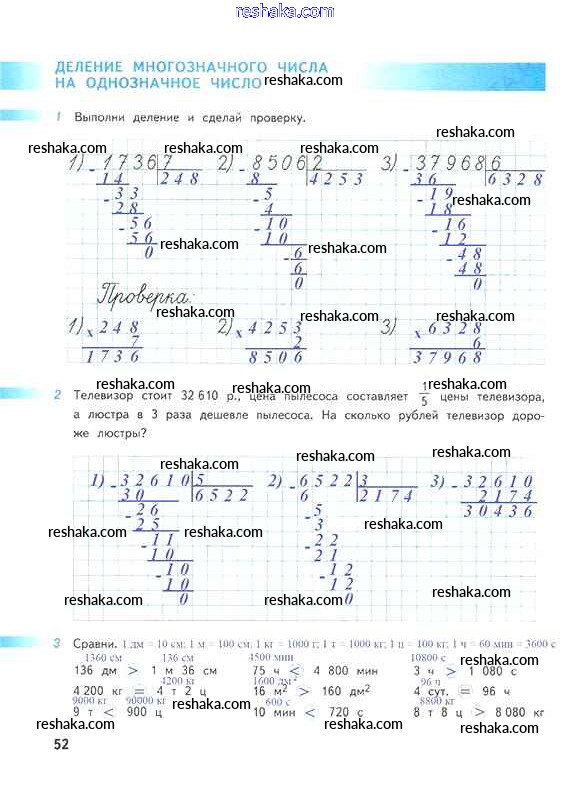 www.reshaka.com
ДЕЛЕНИЕ МНОГОЗНАЧНОГО ЧИСЛА
НА ОДНОЗНАЧНОЕ ЧИСЛО reshaka.com
1 Выполни деление и сделай проверку.
reshaka.com reshaka.com reshaka.com
1) - 1736 7 2) - 8506 2 3) - 37968 6
14 248 8 4253 36 6328
- 33 - 5 - 19
28 4 18
- 56 - 10 - 16
56 10 12
0 - 6 - 48
6 48
0 0
reshaka.com reshaka.com reshaka.com
Проверка:
reshaka.com reshaka.com
1) x 248 2) x 4253 3) x 6328
7 2 6
1736 8506 37968
reshaka.com reshaka.com
2 Телевизор стоит 32 610 р., цена пылесоса составляет 1/5 цены телевизора,
а люстра в 3 раза дешевле пылесоса. На сколько рублей телевизор доро-
же люстры?
reshaka.com reshaka.com
1) - 32610 5 2) - 6522 3 3) - 32610
30 6522 6 2174 2174
- 26 - 5 30436
25 3
- 11 - 22
10 21
- 10 - 12
10 12
0 0
reshaka.com reshaka.com reshaka.com
reshaka.com reshaka.com
reshaka.com
3 Сравни. 1 дм = 10 см; 1 м = 100 см; 1 кг = 1000 г; 1 т = 1000 кг; 1 ц = 100 кг; 1 ч = 60 мин = 3600 с
1360 см 136 см 4500 мин 10800 с
136 дм > 1 м 36 см 75 ч < 4 800 мин 3 ч > 1 080 с
4200 кг 1600 дм² 96 ч
4 200 кг = 4 т 2 ц 16 м² > 160 дм² 4 сут. = 96 ч
9000 кг 90000 кг 600 с 8800 кг
9 т < 900 ц 10 мин < 720 с 8 т 8 ц > 8 080 кг
reshaka.com reshaka.com
52
reshaka.com